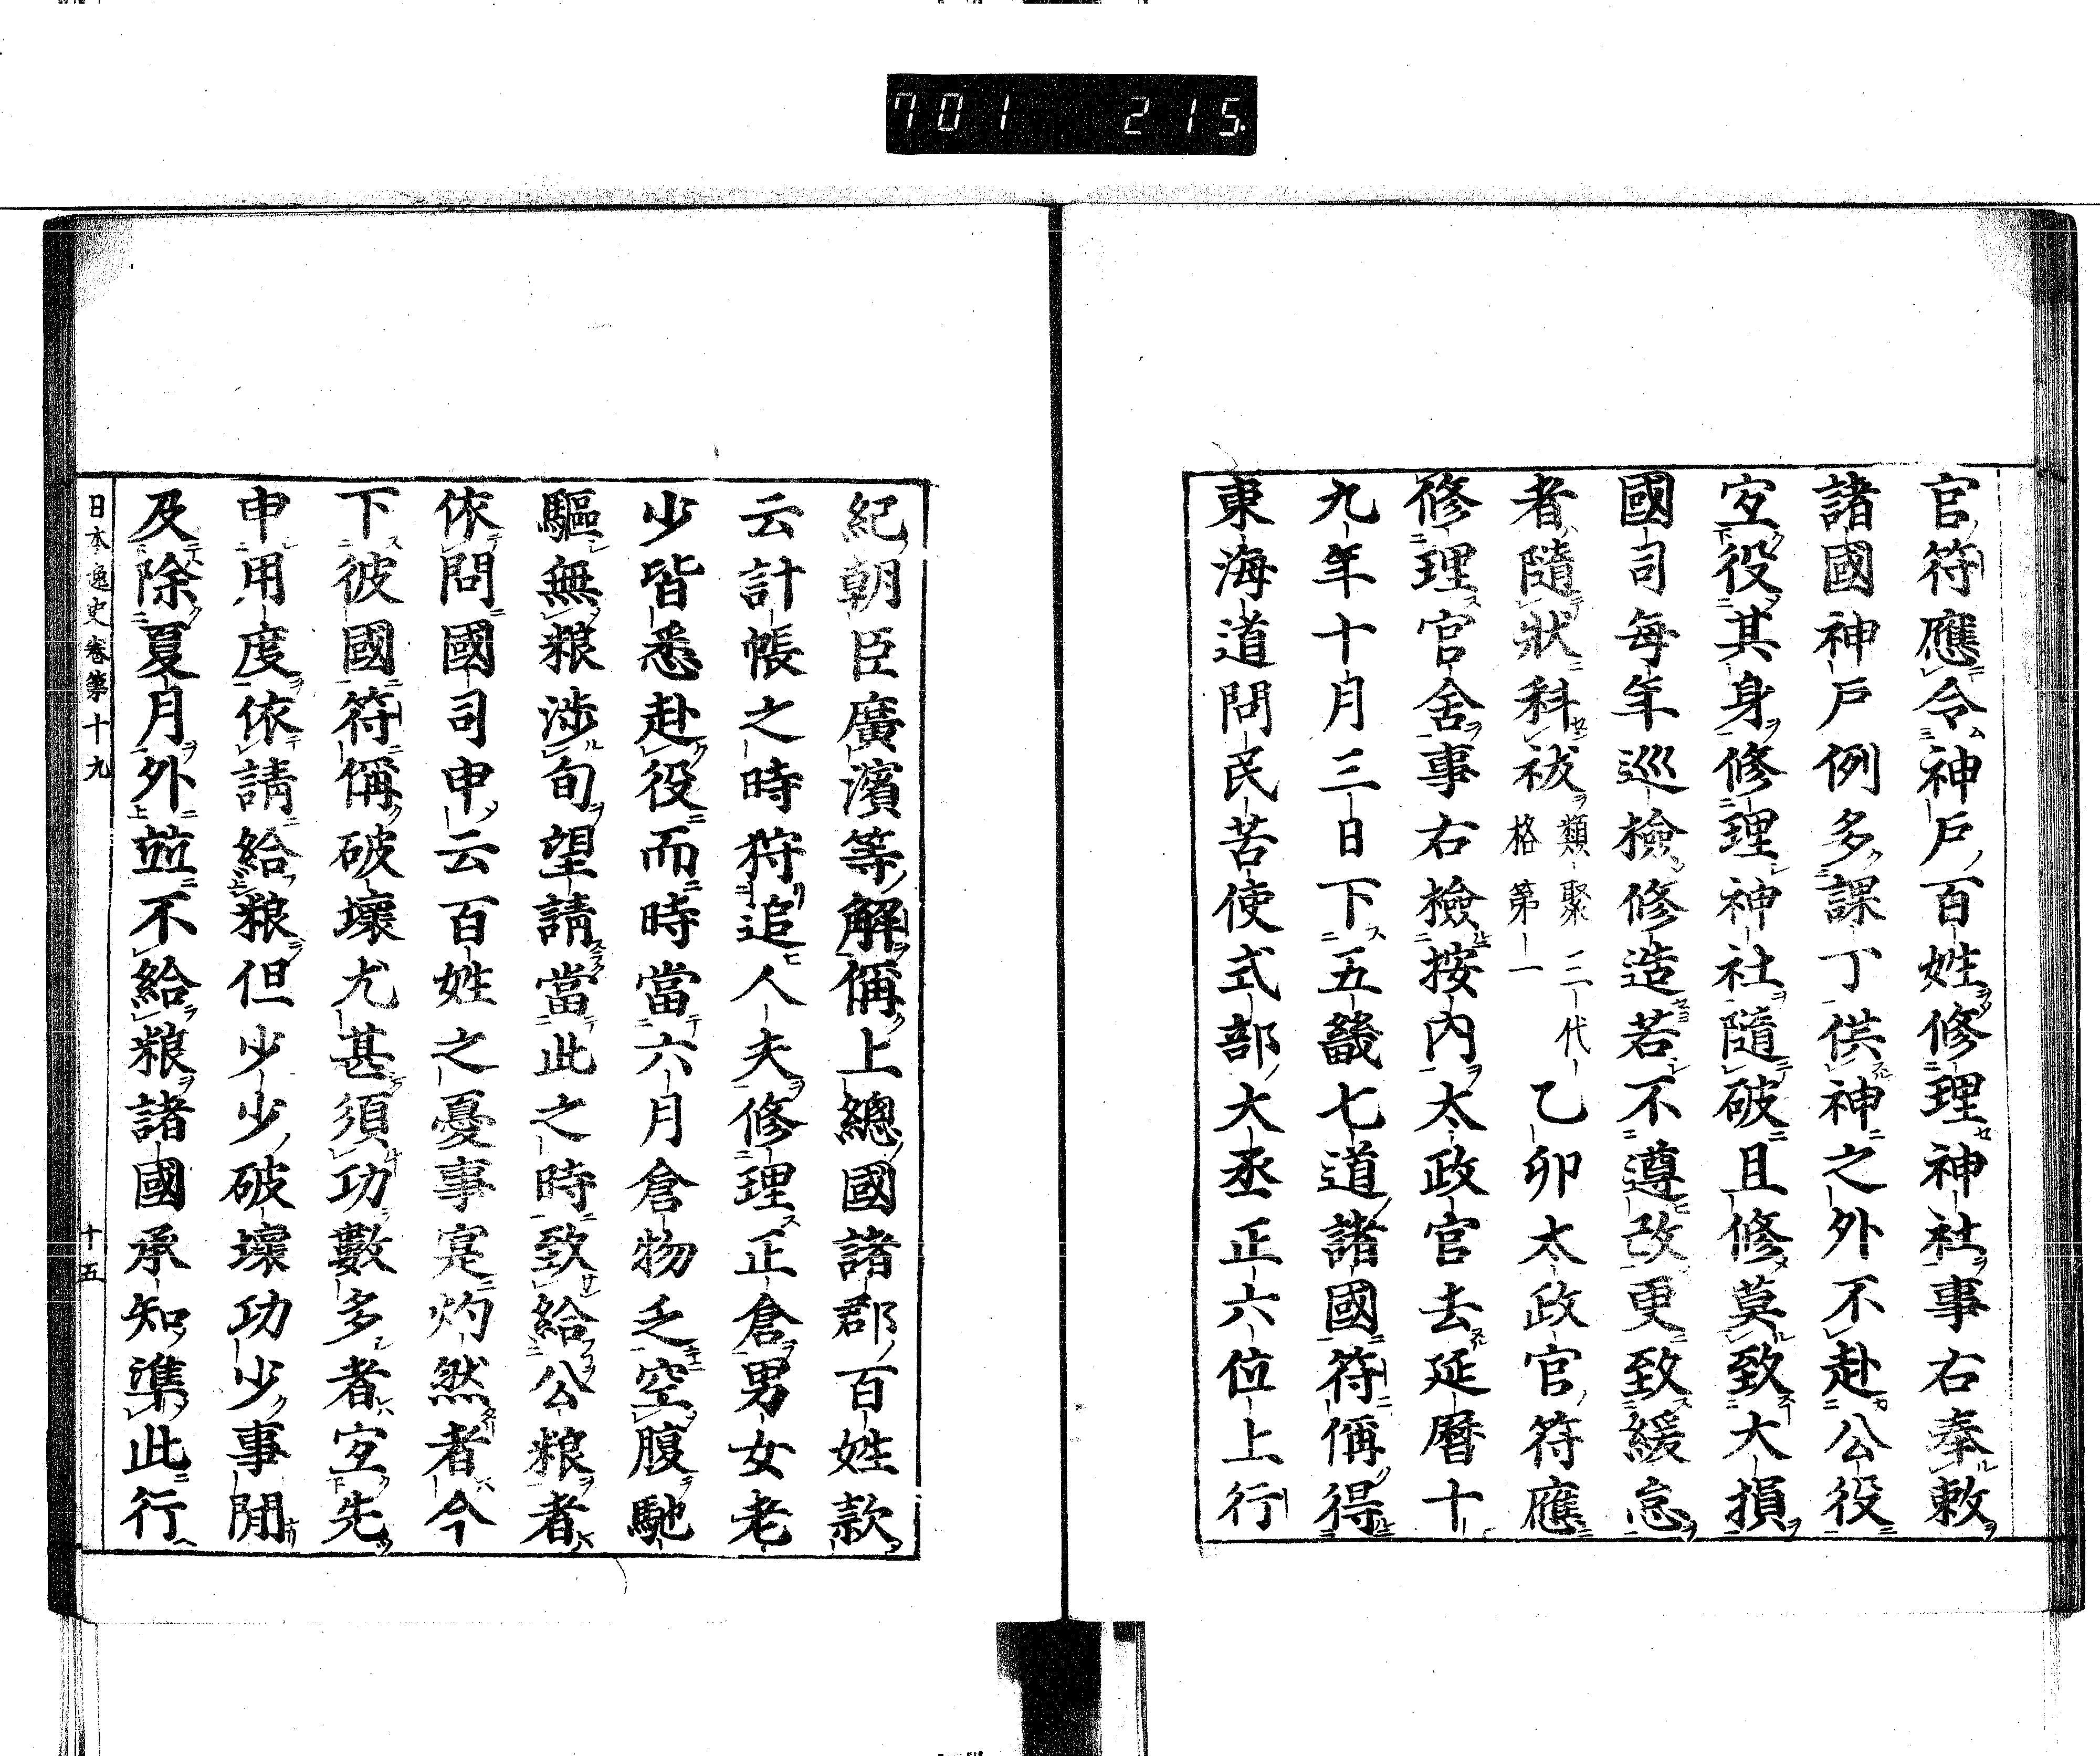 701 215
官符應令神戸百姓修理神社事右奉敕
諸國神戸例多課丁供神之外不赴公役
宐役其身修理神社隨破且修莫致大損
國司每年巡檢修造若不遵改更致緩怠
者隨狀科祓類聚三代格第一乙卯太政官符應
修理官舍事右檢按内太政官去延曆十
九年十月三日下五畿七道諸國符偁得
東海道問民苦使式部大丞正六位上行
紀朝臣廣濱等解偁上總國諸郡百姓款
云計帳之時狩追人夫修理正倉男女老
少皆悉赴役而時當六月倉物乏空腹馳
驅無粮涉旬望請當此之時致給公粮者
依問國司申云百姓之憂事寔灼然者今
下彼國符偁破壞尤甚須功數多者宐先
申用度依請給粮但少少破壞功少事閒
及除夏月外並不給粮諸國承知準此行
日本逸史卷第十九
十五